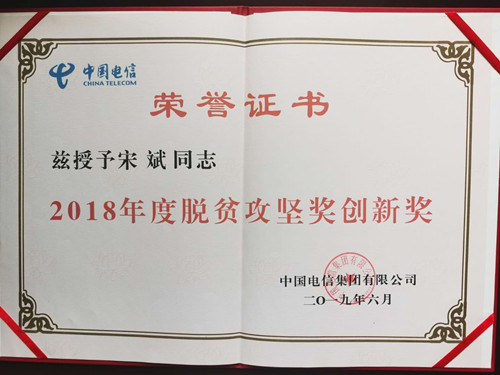 中国电信
CHINA TELECOM
荣誉证书
兹授予宋 斌同志
2018年度脱贫攻坚奖创新奖
中国电信集团有限公司
二〇一九年六月